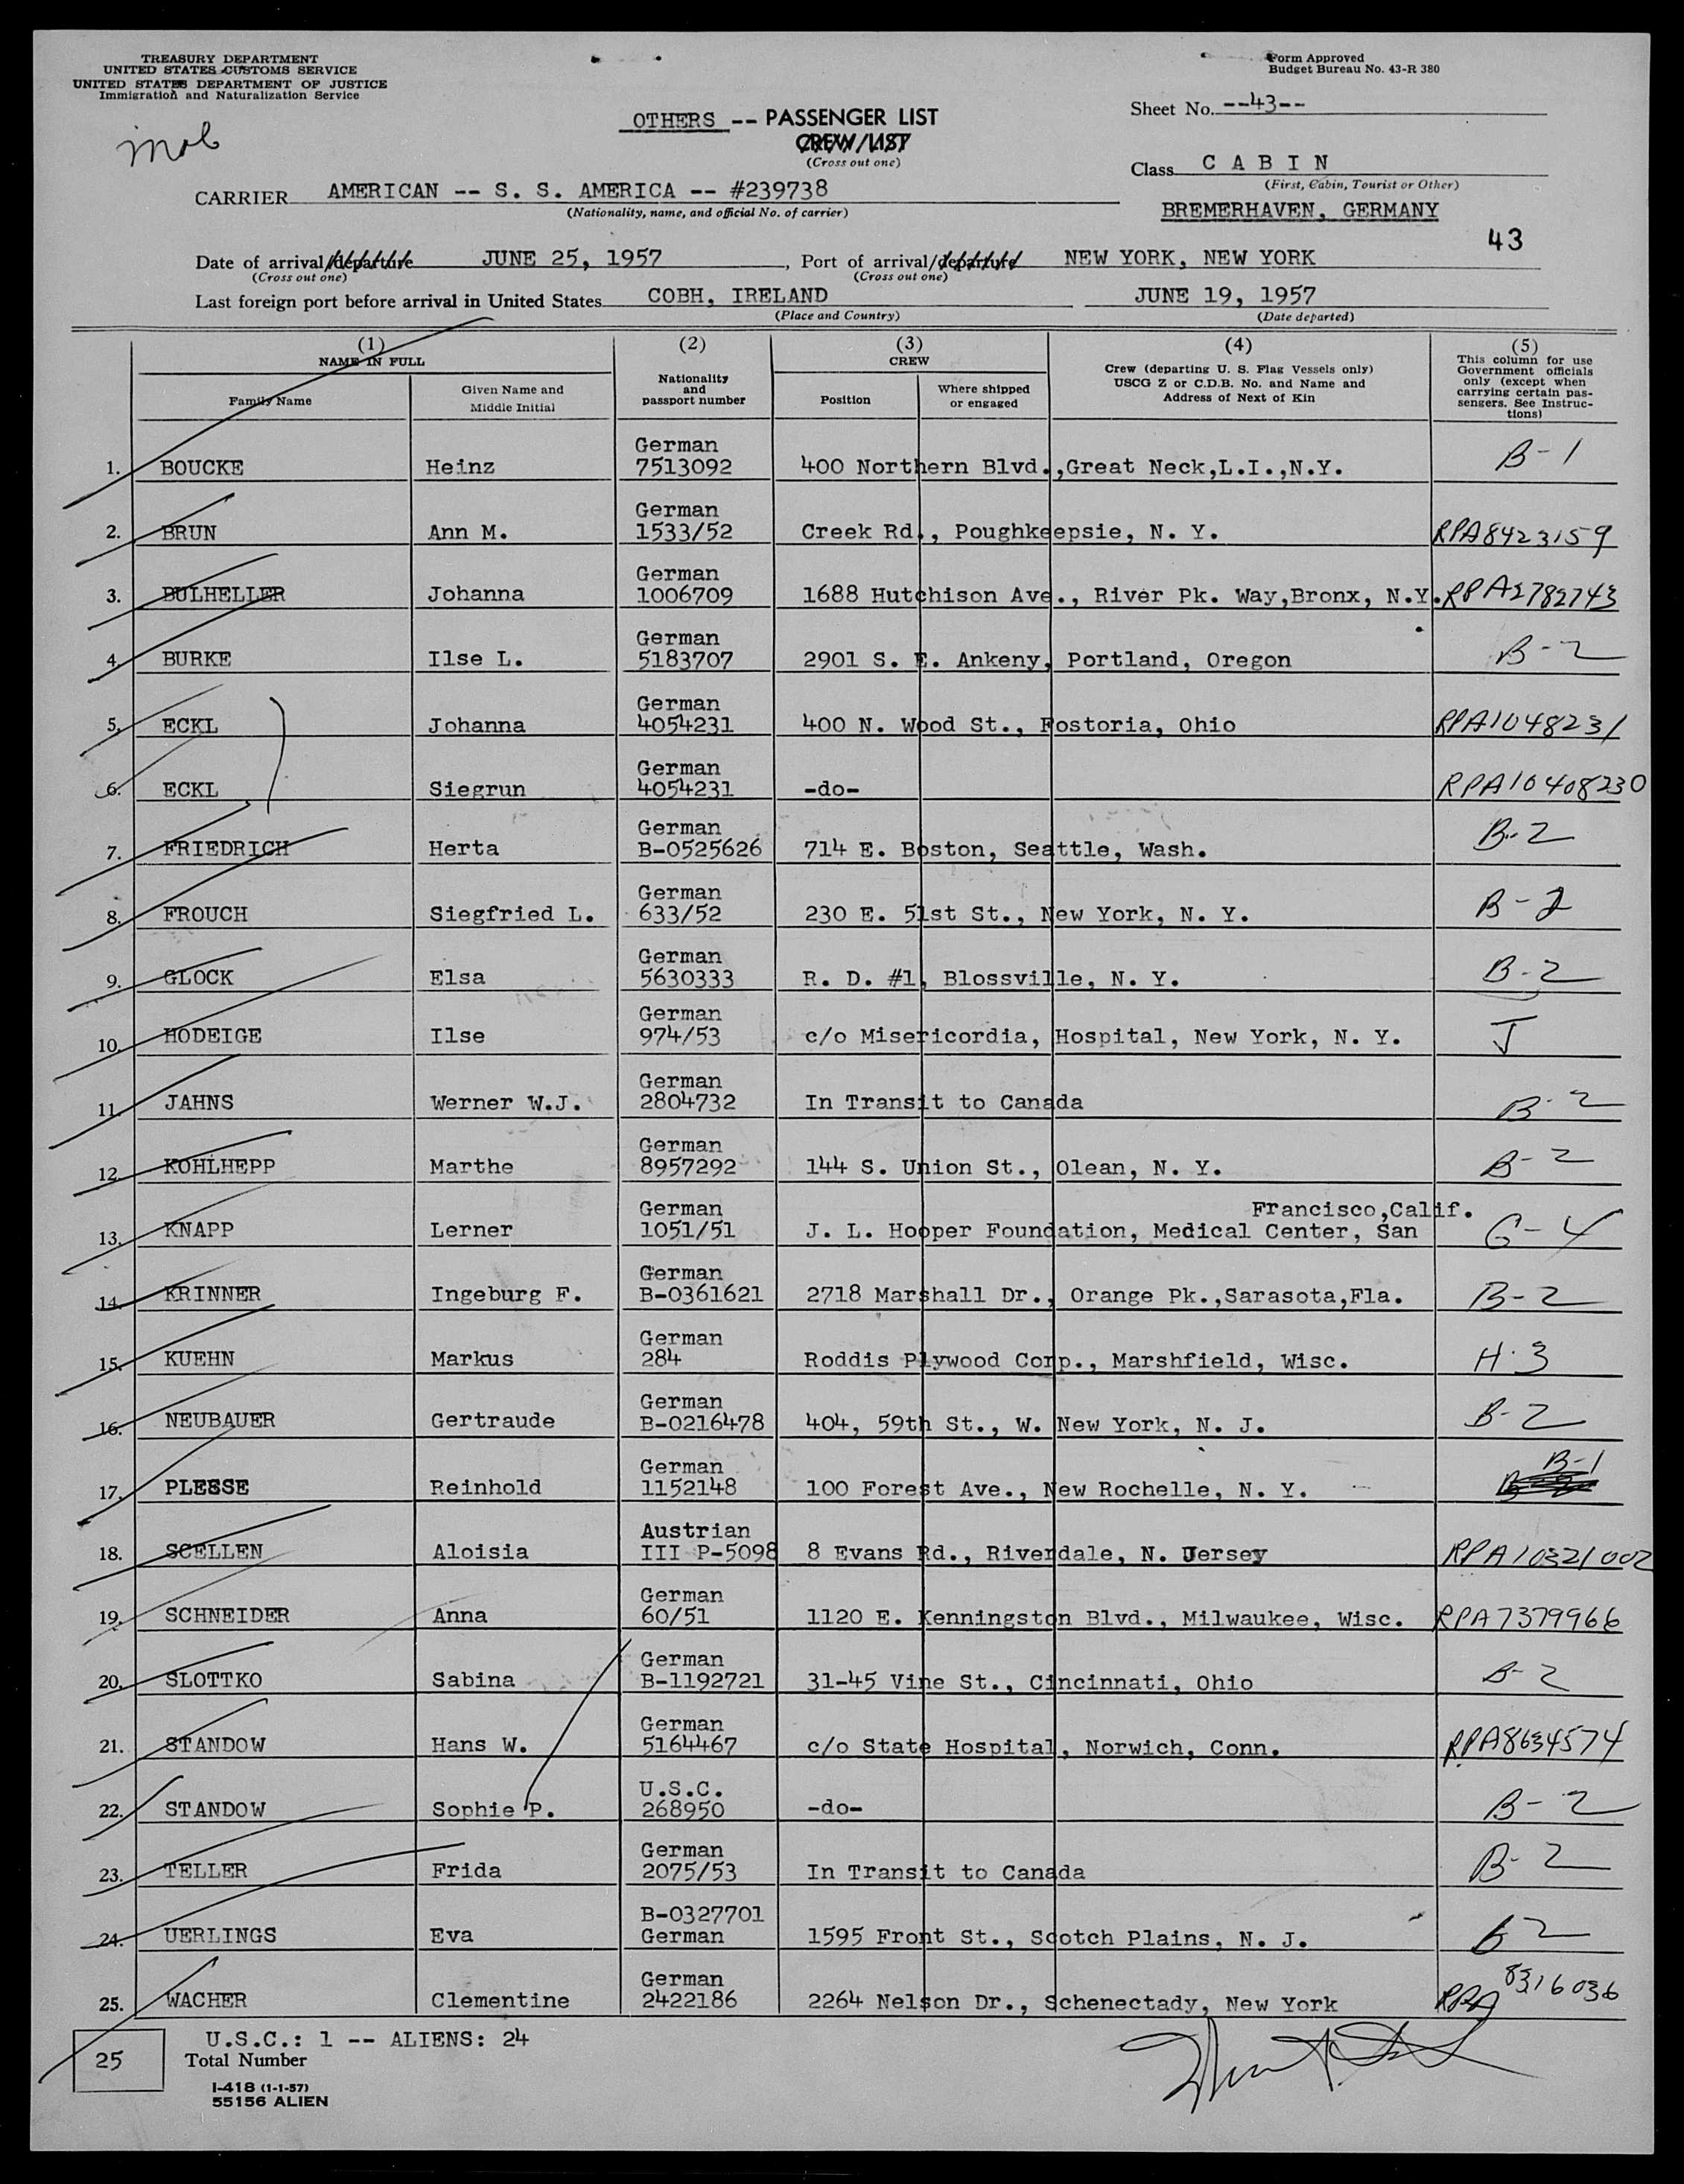 TREASURY DEPARTMENT
UNITED STATES CUSTOMS SERVICE
UNITED STATES DEPARTMENT OF JUSTICE
Immigration and Naturalization Service
Form Approved
Budget Bureau No. 43-R 380
Sheet No. --43--
OTHERS -- PASSENGER LIST
CREW/LIST
(Cross out one)
Class C A B I N
(First, Cabin, Tourist or Other)
CARRIER AMERICAN -- S. S. AMERICA -- #239738
(Nationality, name, and official No. of carrier)
BREMERHAVEN, GERMANY
43
Date of arrival/departure JUNE 25, 1957, Port of arrival/departure NEW YORK, NEW YORK
(Cross out one) (Cross out one)
Last foreign port before arrival in United States COBH, IRELAND JUNE 19, 1957
(Place and Country) (Date departed)
(1) NAME IN FULL
Family Name
Given Name and Middle Initial
(2) Nationality and passport number
(3) CREW
Position
Where shipped or engaged
(4) Crew (departing U. S. Flag Vessels only) USCG Z or C.D.B. No. and Name and Address of Next of Kin
(5) This column for use Government officials only (except when carrying certain passengers. See Instructions)
1. BOUCKE Heinz German 7513092 400 Northern Blvd.,Great Neck,L.I.,N.Y. B-1
2. BRUN Ann M. German 1533/52 Creek Rd., Poughkeepsie, N. Y. RPA8423159
3. BULHELLER Johanna German 1006709 1688 Hutchison Ave., River Pk. Way,Bronx, N.Y. RPA2782743
4. BURKE Ilse L. German 5183707 2901 S. E. Ankeny, Portland, Oregon B-2
5. ECKL Johanna German 4054231 400 N. Wood St., Fostoria, Ohio RPA1048231
6. ECKL Siegrun German 4054231 -do- RPA10408230
7. FRIEDRICH Herta German B-0525626 714 E. Boston, Seattle, Wash. B-2
8. FROUCH Siegfried L. German 633/52 230 E. 51st St., New York, N. Y. B-2
9. GLOCK Elsa German 5630333 R. D. #1, Blossville, N. Y. B-2
10. HODEIGE Ilse German 974/53 c/o Misericordia, Hospital, New York, N. Y. J
11. JAHNS Werner W.J. German 2804732 In Transit to Canada B-2
12. KOHLHEPP Marthe German 8957292 144 S. Union St., Olean, N. Y. B-2
13. KNAPP Lerner German 1051/51 J. L. Hooper Foundation, Medical Center, San Francisco,Calif. G-4
14. KRINNER Ingeburg F. German B-0361621 2718 Marshall Dr., Orange Pk.,Sarasota,Fla. B-2
15. KUEHN Markus German 284 Roddis Plywood Corp., Marshfield, Wisc. H-3
16. NEUBAUER Gertraude German B-0216478 404, 59th St., W. New York, N. J. B-2
17. PLESSE Reinhold German 1152148 100 Forest Ave., New Rochelle, N. Y. B-1
18. SCELLEN Aloisia Austrian III P-5098 8 Evans Rd., Riverdale, N. Jersey RPA10321002
19. SCHNEIDER Anna German 60/51 1120 E. Kenningston Blvd., Milwaukee, Wisc. RPA7379966
20. SLOTTKO Sabina German B-1192721 31-45 Vine St., Cincinnati, Ohio B-2
21. STANDOW Hans W. German 5164467 c/o State Hospital, Norwich, Conn. RPA8634574
22. STANDOW Sophie P. U.S.C. 268950 -do- B-2
23. TELLER Frida German 2075/53 In Transit to Canada B-2
24. UERLINGS Eva B-0327701 German 1595 Front St., Scotch Plains, N. J. B2
25. WACHER Clementine German 2422186 2264 Nelson Dr., Schenectady, New York RPA 8316036
25
U.S.C.: 1 -- ALIENS: 24
Total Number
I-418 (1-1-57)
55156 ALIEN